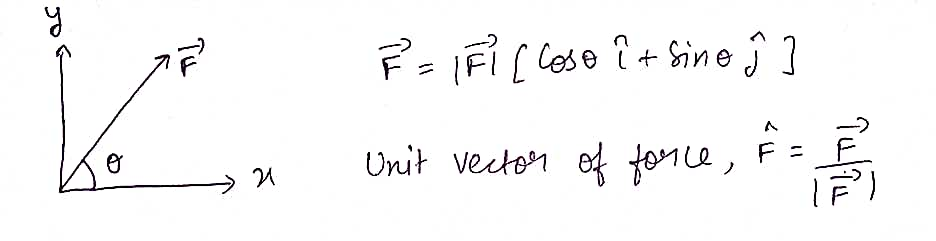 y
F⃗
θ
x
F⃗ = |F⃗| [ Cosθ î + Sinθ ĵ ]
Unit vector of force, F̂ = F⃗ / |F⃗|